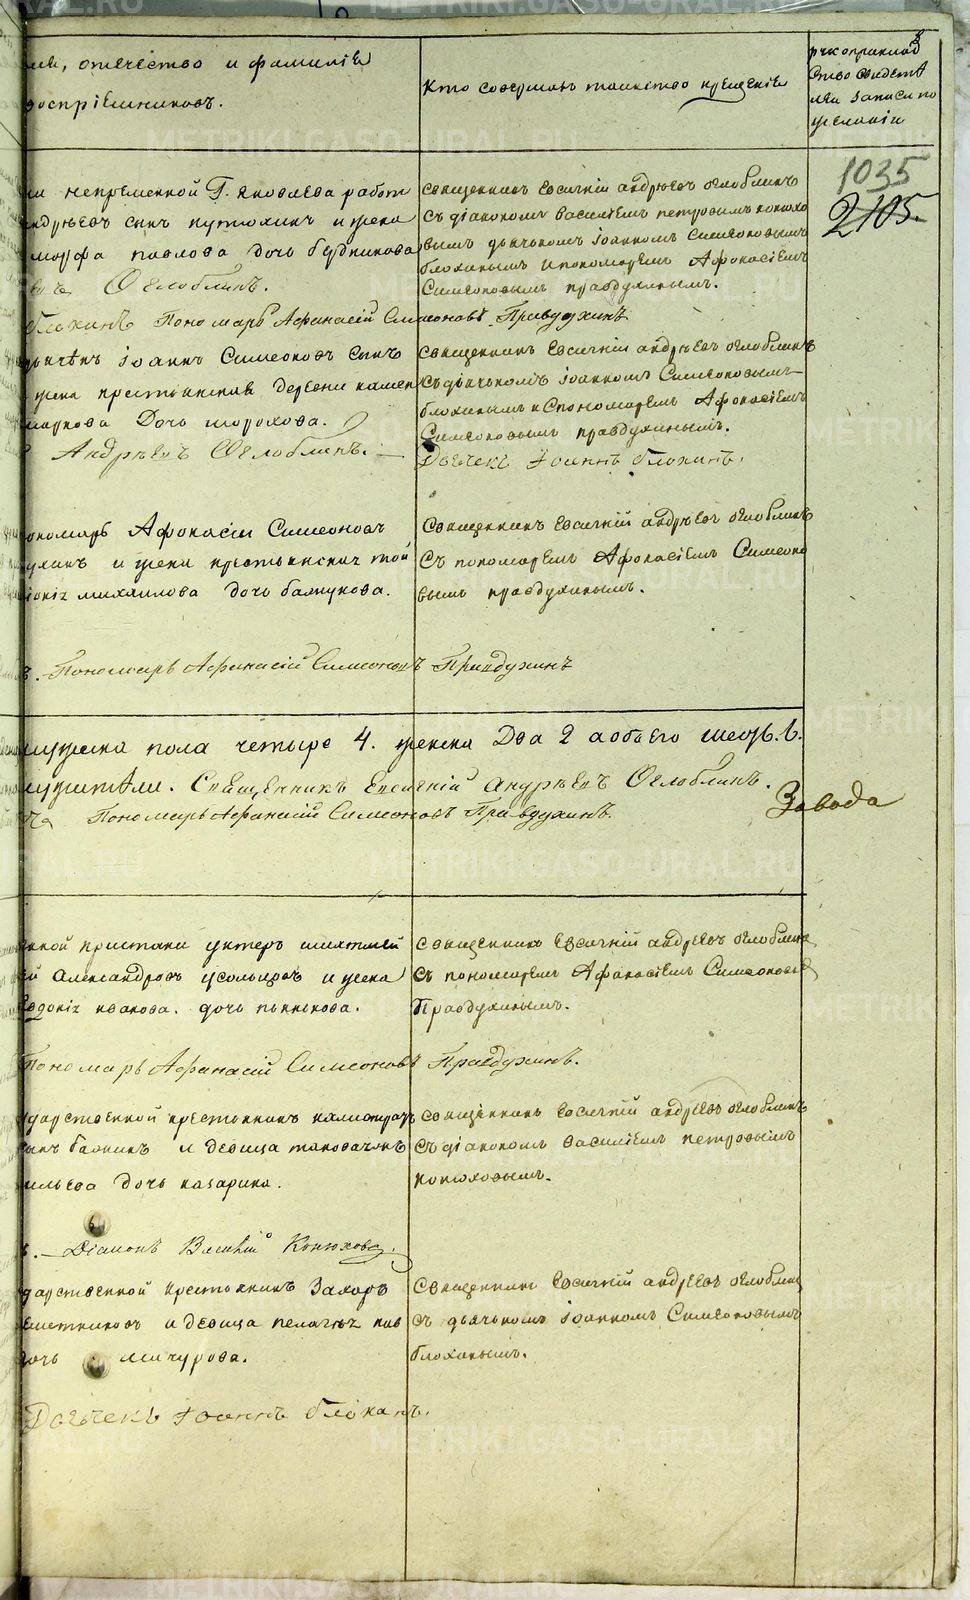 отечество и фамилiя
воспрiемниковъ.
Кто совершалъ таинство крещенiя
рукоприклад
ство свидетѣ
лей записи по
желанiю
1035
2105.
непременной Г. Яковлева работ
Андрѣевъ сынъ и жена
марфа павлова дочь бердникова
Оглоблинъ.
священникъ Евгенiй андрѣевъ оглоблинъ
съ дiакономъ василiемъ петровымъ конюхо
вымъ дьячькомъ iоанномъ Симеоновымъ
блохинымъ и пономаремъ Афонасiемъ
Симеоновымъ правдухинымъ.
блохинъ Пономарь Афанасiй Симеоновъ Правдухинъ
дьячёкъ iоаннъ Симеоновъ сынъ
жена крестьянская деревни камен
маркова Дочь шорохова.
Андрѣевъ Оглоблинъ.
священникъ Евгенiй андрѣевъ оглоблинъ
съ дьячькомъ iоанномъ Симеоновымъ
блохинымъ и пономаремъ Афонасiемъ
Симеоновымъ правдухинымъ.
Дьячекъ Iоаннъ блохинъ.
пономарь Афонасiй Симеоновъ
и жена крестьянская той
михаилова дочь балчукова.
священникъ Евгенiй андрѣевъ оглоблинъ
съ пономаремъ Афонасiемъ Симеоно
вымъ правдухинымъ.
Пономарь Афанасiй Симеоновъ Правдухинъ
мужска пола четыре 4. женска Два 2 а обоего шесть. 6.
служители. Священникъ Евгенiй Андрѣевъ Оглоблинъ.
Пономарь Афанасiй Симеоновъ Правдухинъ.
Завода
пристани унтеръ шихтмей
Александровъ усольцовъ и жена
Евдокiя иванова. дочь пьянкова.
священникъ Евгенiй андрѣевъ оглоблинъ
съ пономаремъ Афанасiемъ Симеоновы
Правдухинымъ.
Пономарь Афанасiй Симеоновъ Правдухинъ.
ударственной крестьянинъ калистратъ
сынъ и девица
ильева дочь казарина.
священникъ Евгенiй андрѣевъ оглоблинъ
съ дiакономъ василiемъ петровымъ
конюховымъ.
Дiаконъ Василiй Конюховъ.
ударственной крестьянинъ Захаръ
и девица пелагея пав
дочь мичурова.
священникъ Евгенiй андрѣевъ оглоблинъ
съ дьячькомъ iоанномъ Симеоновымъ
блохинымъ.
Дьячекъ Iоаннъ блохинъ.
METRIKI.GASO-URAL.RU